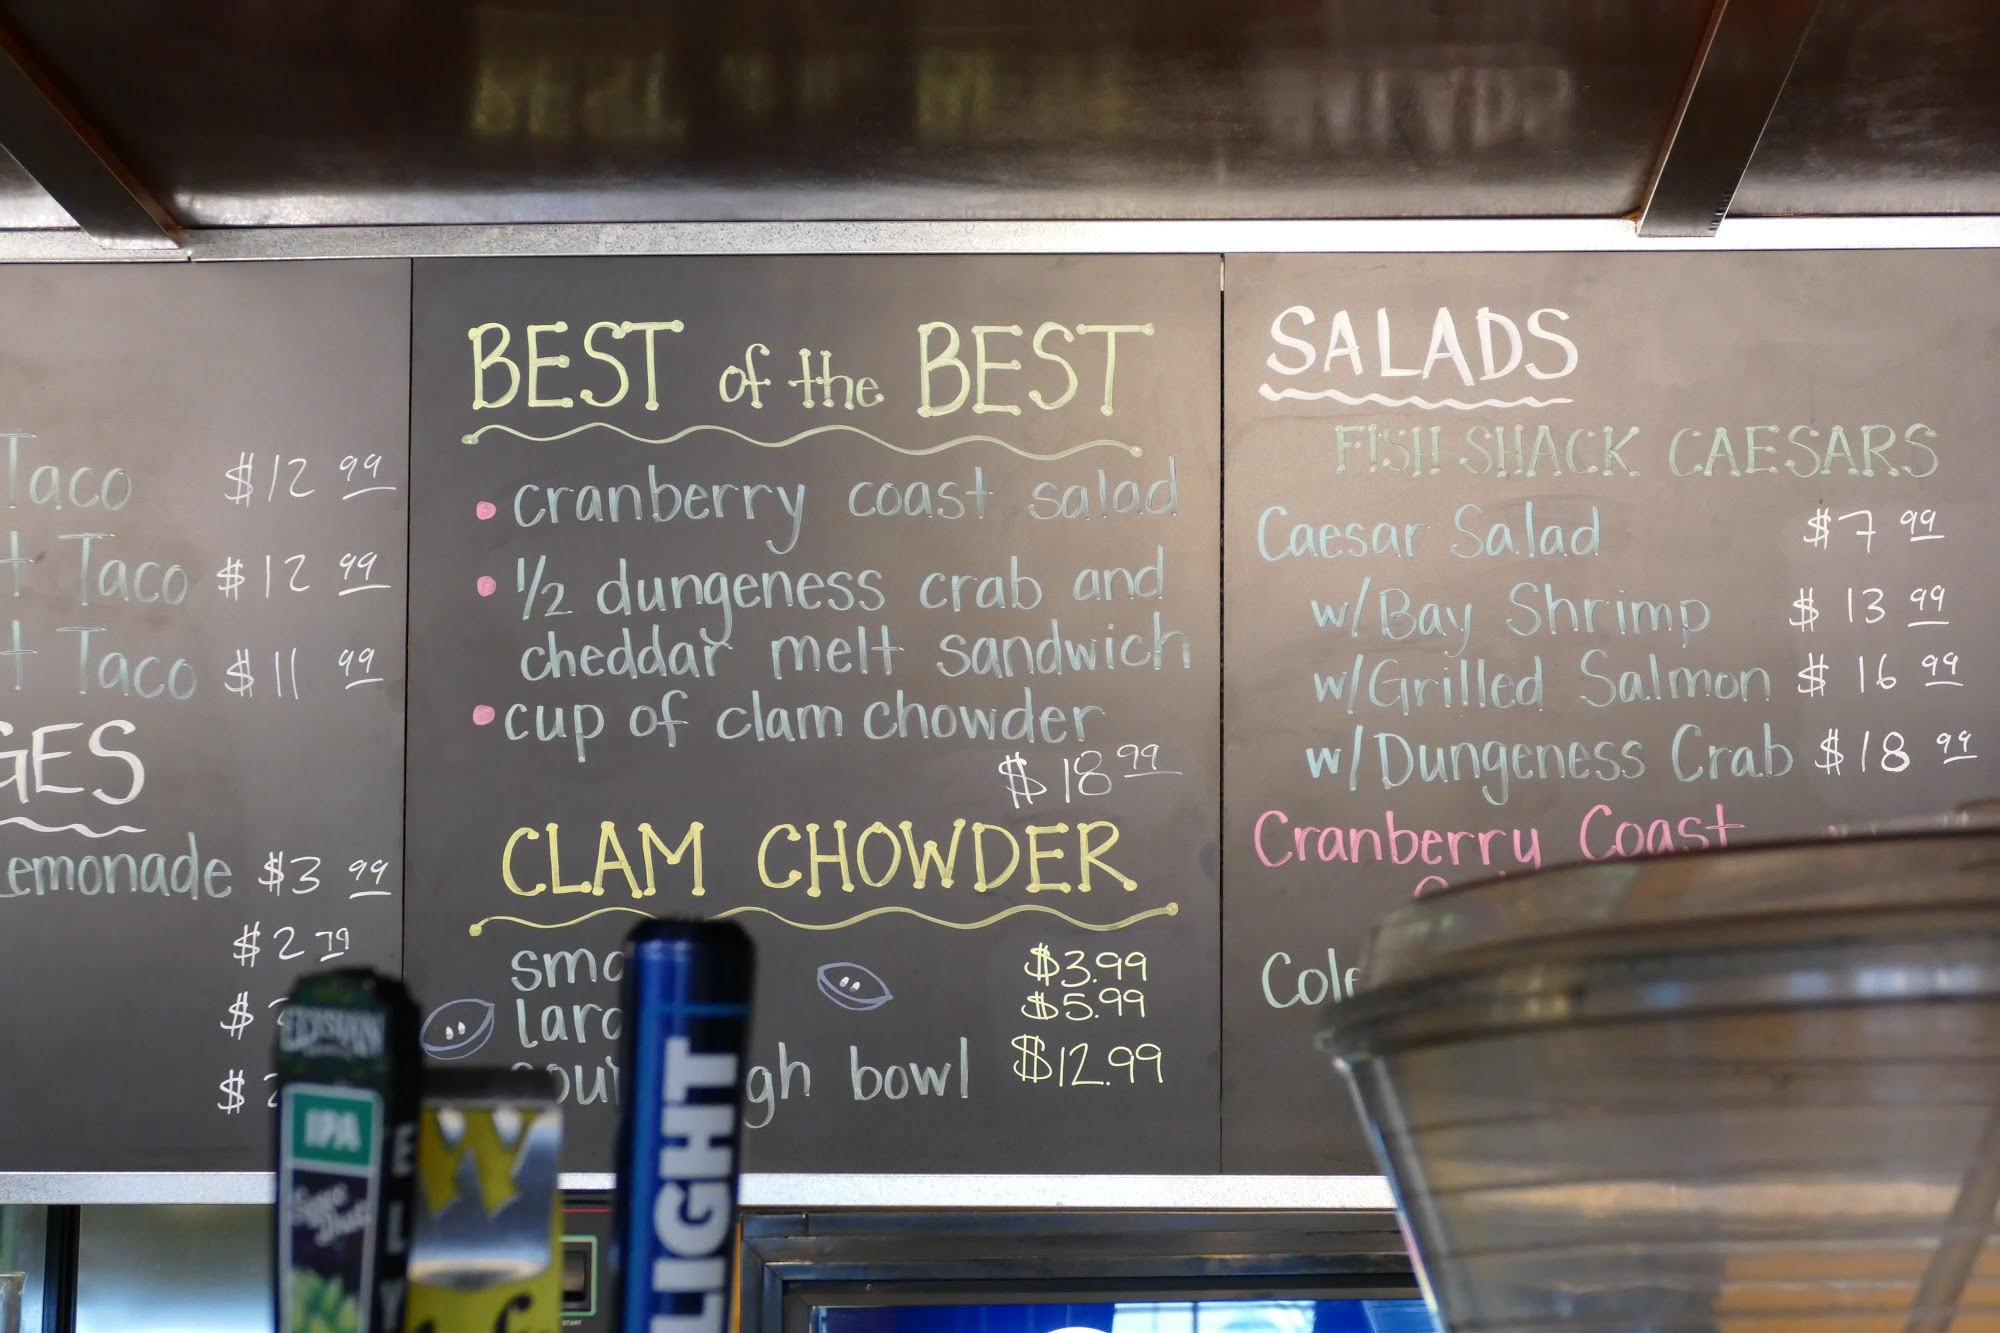 Taco $12 99
Taco $12 99
Taco $11 99
GES
Lemonade $3 99
$2 79
$
$
BEST of the BEST
• cranberry coast salad
• 1/2 dungeness crab and
cheddar melt sandwich
• cup of clam chowder
$18 99
CLAM CHOWDER
$3.99
$5.99
bowl $12.99
SALADS
FISH SHACK CAESARS
Caesar Salad $7 99
w/Bay Shrimp $13 99
w/Grilled Salmon $16 99
w/Dungeness Crab $18 99
Cranberry Coast
IPA
LIGHT